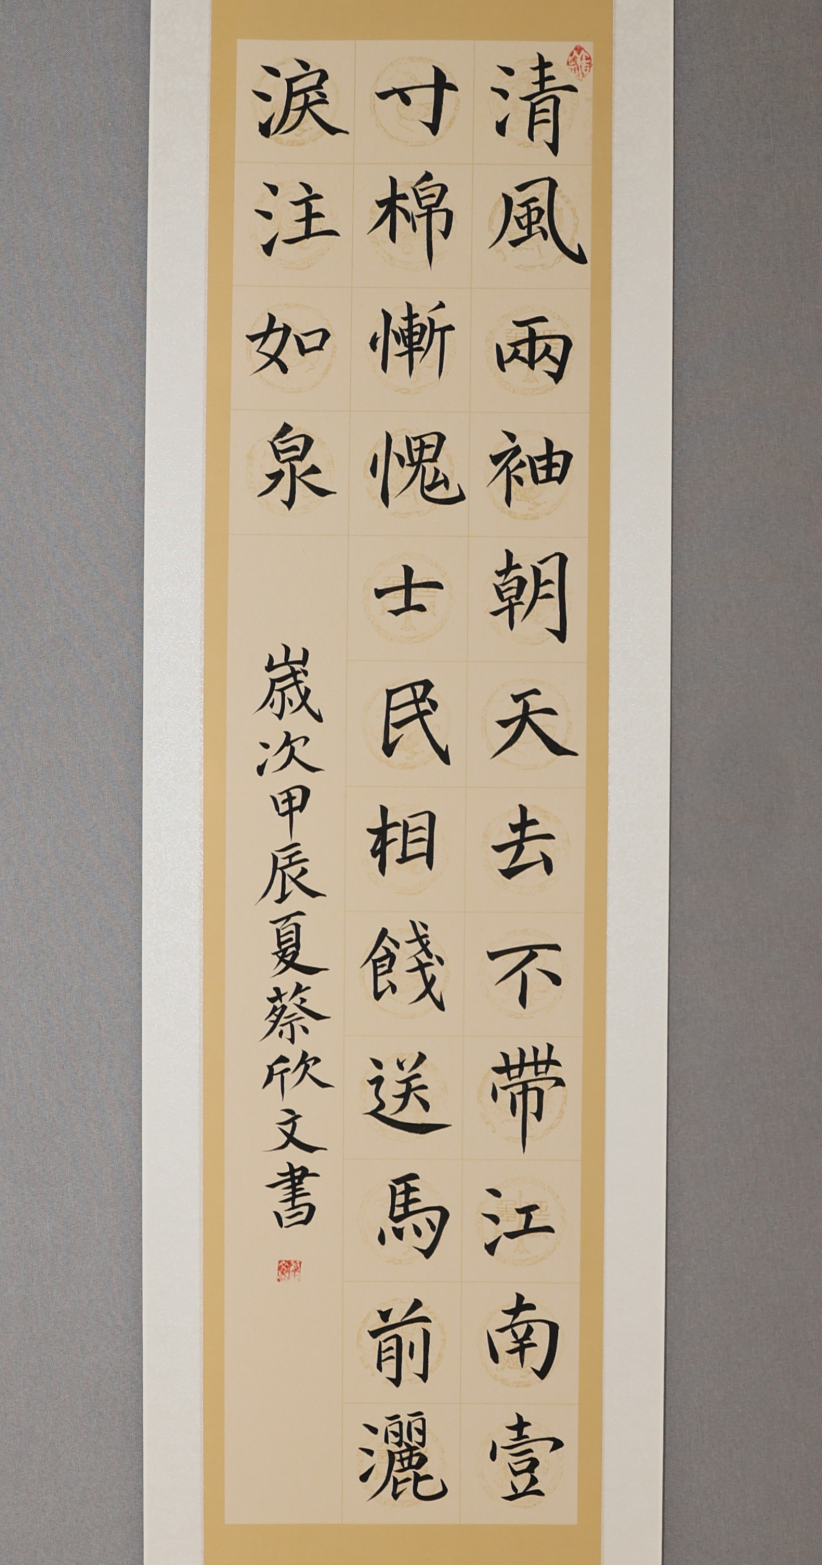 清風兩袖朝天去不帶江南壹
寸棉慚愧士民相餞送馬前灑
淚注如泉
歲次甲辰夏蔡欣文書